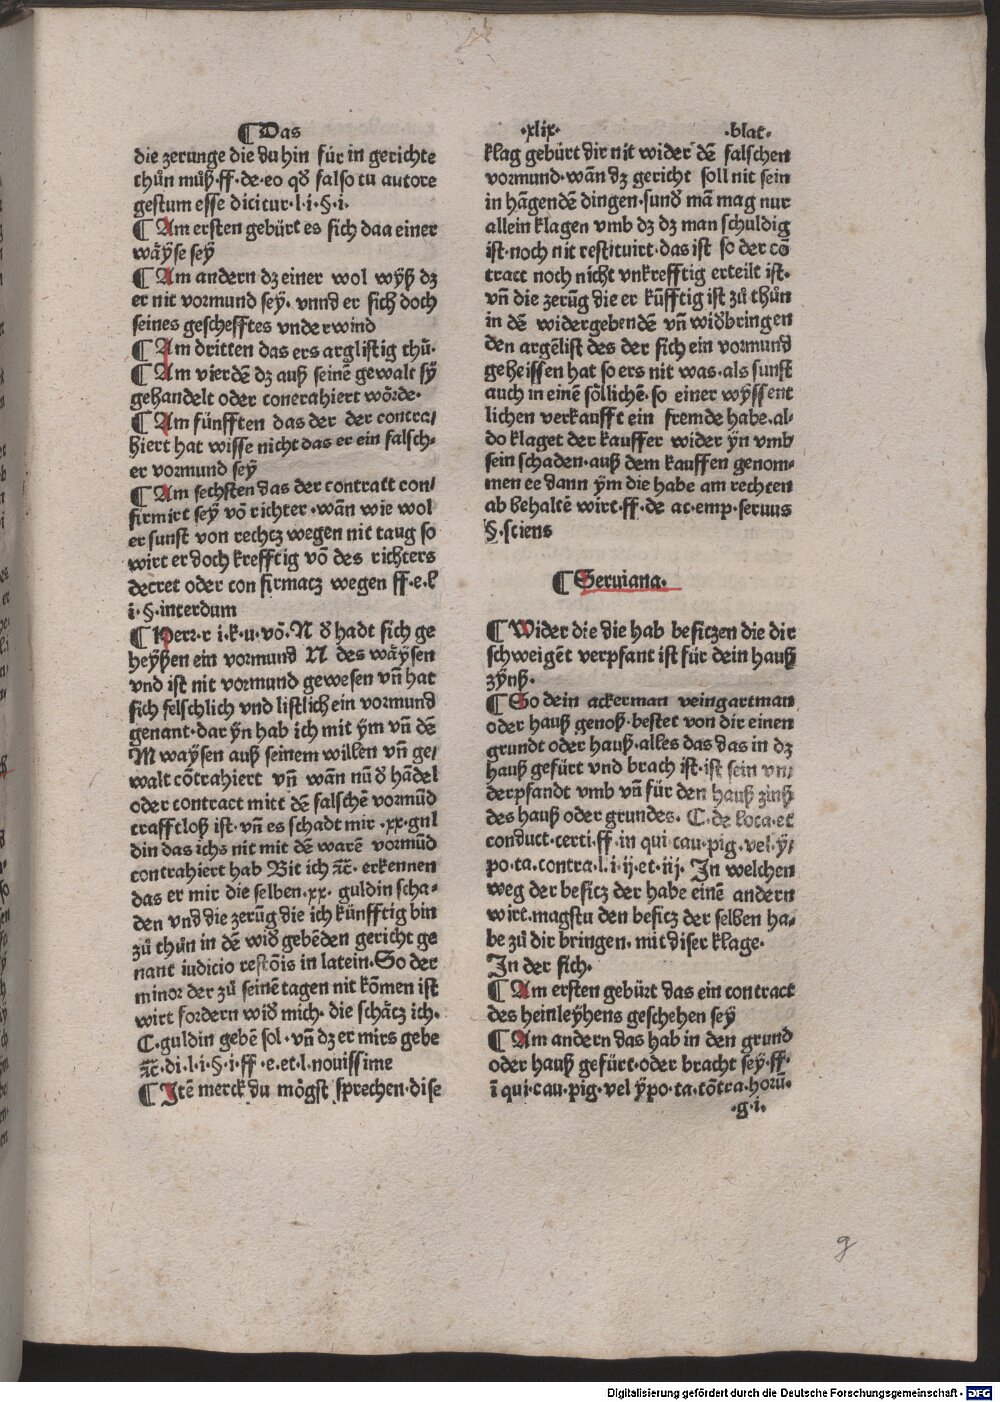 ¶ Das
die zerunge die du hin für in gerichte
thůn můß·ff·de·eo qď falso tu autore
gestum esse dicitur·l·i·§·i·
¶ Am ersten gebürt es sich daa einer
wäyse sey
¶ Am andern dz einer wol wyß dz
er nit vormund sey· vnnd er sich doch
seines geschefftes vnderwind
¶ Am dritten das ers arglistig thů·
¶ Am vierdē dz auß seinē gewalt sy̆
gehandelt oder conerahiert wörde·
¶ Am fünfften das der der contra/
hiert hat wisse nicht das er ein falsch-
er vormund sey
¶ Am sechsten das der contratt con/
firmirt sey võ richter·wãn wie wol
er sunst von rechtz wegen nit taug so
wirt er doch krefftig võ des richters
decret oder con firmatz wegen ff·e·l
i·§·interdum
¶ Herr·r i·k·u·võ·N ď hadt sich ge
heyßen ein vormund N des wäysen
vnd ist nit vormund gewesen vñ hat
sich felschlich vnd listlich ein vormund
genant·dar ÿn hab ich mit ÿm vñ dē
M waysen auß seinem willen vñ ge/
walt cõtrahiert vñ wãn nũ ď hãdel
oder contract mitt dē falschē vormũd
trafftloß ist·vñ es schadt mir·xx·gul
din das ichs nit mit dē warē vormũd
contrahiert hab Bit ich ꝛc̄· erkennen
das er mir die selben·xx· guldin scha-
den vnd die zerũg die ich künfftig bin
zů thůn in dē wiď gebēden gericht ge
nant iudicio restõis in latein·So der
minor der zů seinē tagen nit kõmen ist
wirt fordern wiď mich· die schätz ich·
C·guldin gebē sol·vñ dz er mirs gebe
ꝛc̄·di·l·i·§·i·ff·e·et·l·nouissime
¶ Itē merck du mögst sprechen·dise
·xlix· ·blat·
klag gebürt dir nit wider dē falschen
vormund·wãn dz gericht soll nit sein
in hãgendē dingen·sunď mã mag nur
allein klagen vmb dz dz man schuldig
ist·noch nit restituirt·das ist so der cõ
tract noch nicht vnkrefftig erteilt ist·
vñ die zerũg die er künfftig ist zů thůn
in dē widergebendē vñ widbringen
den argēlist des der sich ein vormund
geheissen hat so ers nit was·als sunst
auch in einē söllichē·so einer wyssent
lichen verkaufft ein fremde habe·al-
do klaget der kauffer wider ÿn vmb
sein schaden·auß dem kauffen genom-
men ee dann ÿm die habe am rechten
ab behaltē wirt·ff·de ac·emp·seruus
§·sciens
¶ Seruiana·
¶ Wider die die hab besitzen die dir
schweigēt verpfant ist für dein hauß
zÿnß·
¶ So dein ackerman weingartman
oder hauß genoß·bestet von dir einen
grundt oder hauß·alles das das in dz
hauß gefürt vnd brach ist·ist sein vn/
derpfandt vmb vñ für den hauß zinß
des hauß oder grundes· C·de loca·et
conduct·certi·ff·in qui cau·pig·vel·ÿ/
po·ta·contra·l·i·ij·et·iij· In welchen
weg der besitz der habe einē andern
wirt·magstu den besitz der selben ha-
be zů dir bringen·mit diser klage·
In der sich·
¶ Am ersten gebürt das ein contract
des heinleyhens geschehen sey
¶ Am andern das hab in den grund
oder hauß gefürt·oder bracht sey·ff·
ĩ qui·cau·pig·vel ÿpo·ta·cõtra·horũ·
·g·i·
g
Digitalisierung gefördert durch die Deutsche Forschungsgemeinschaft - DFG